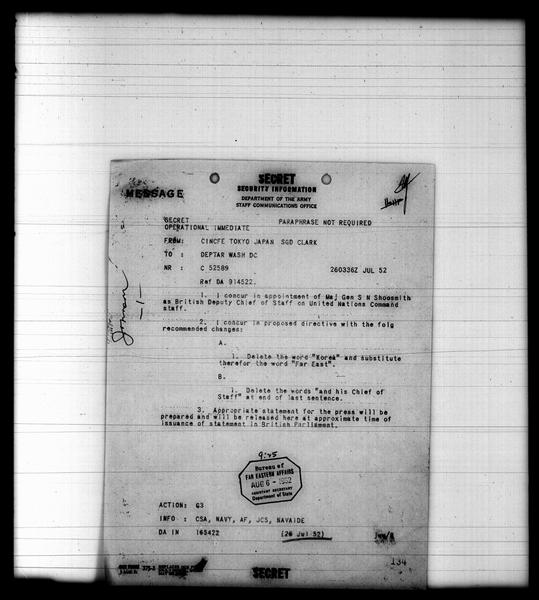 SECRET
SECURITY INFORMATION
DEPARTMENT OF THE ARMY
STAFF COMMUNICATIONS OFFICE
MESSAGE
SECRET PARAPHRASE NOT REQUIRED
OPERATIONAL IMMEDIATE
FROM: CINCFE TOKYO JAPAN SGD CLARK
TO : DEPTAR WASH DC
NR : C 52589 260336Z JUL 52
Ref DA 914522.
1. I concur in appointment of Maj Gen S N Shoosmith
as British Deputy Chief of Staff on United Nations Command
staff.
2. I concur in proposed directive with the folg
recommended changes:
A.
1. Delete the word "Korea" and substitute
therefor the word "Far East".
B.
1. Delete the words "and his Chief of
Staff" at end of last sentence.
3. Appropriate statement for the press will be
prepared and will be released here at approximate time of
issuance of statement in British Parliament.
9:25
Bureau of
FAR EASTERN AFFAIRS
AUG 6 - 1952
ASSISTANT SECRETARY
Department of State
ACTION: G3
INFO : CSA, NAVY, AF, JCS, NAVAIDE
DA IN 165422 (26 Jul 52)
134
SECRET